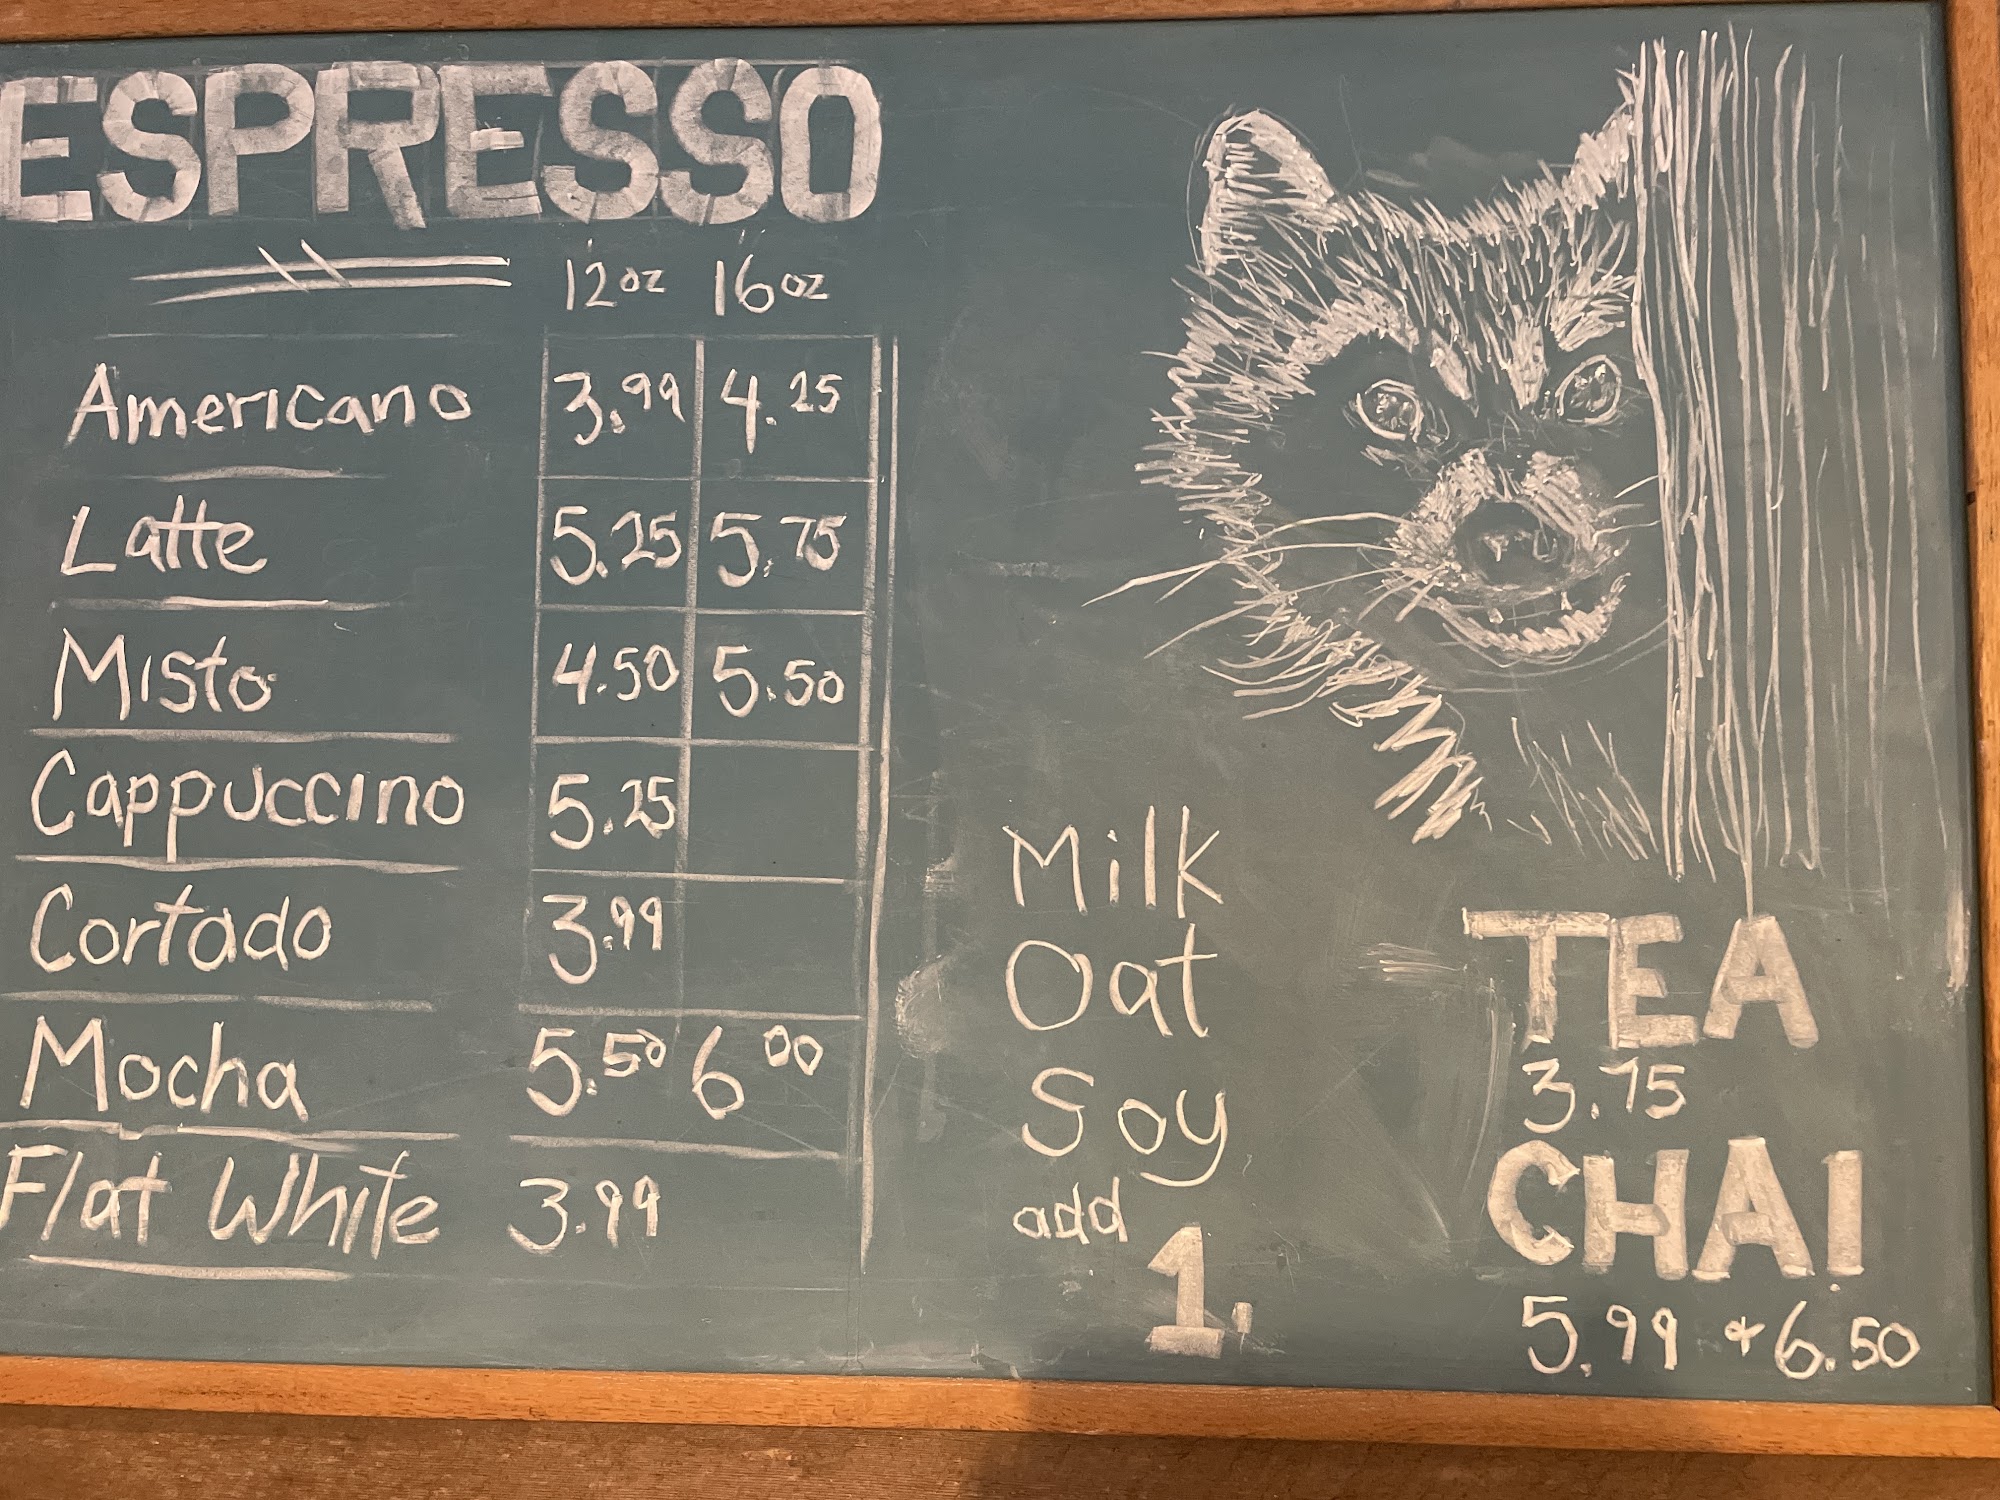 ESPRESSO
12oz 16oz
Americano 3.99 4.25
Latte 5.25 5.75
Misto 4.50 5.50
Cappuccino 5.25
Cortado 3.99
Mocha 5.50 6 00
Flat White 3.99
Milk
Oat
Soy
add
1.
TEA
3.75
CHAI
5.99 & 6.50